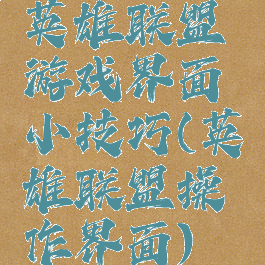 英雄联盟
游戏界面
小技巧(英
雄联盟操
作界面)